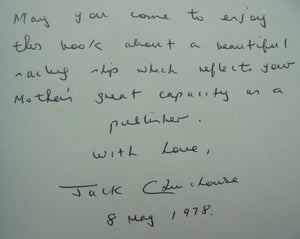 May you come to enjoy
this book about a beautiful
sailing ship which reflects your
Mother's great capacity as a
publisher.
With love,
Jack
8 May 1978.